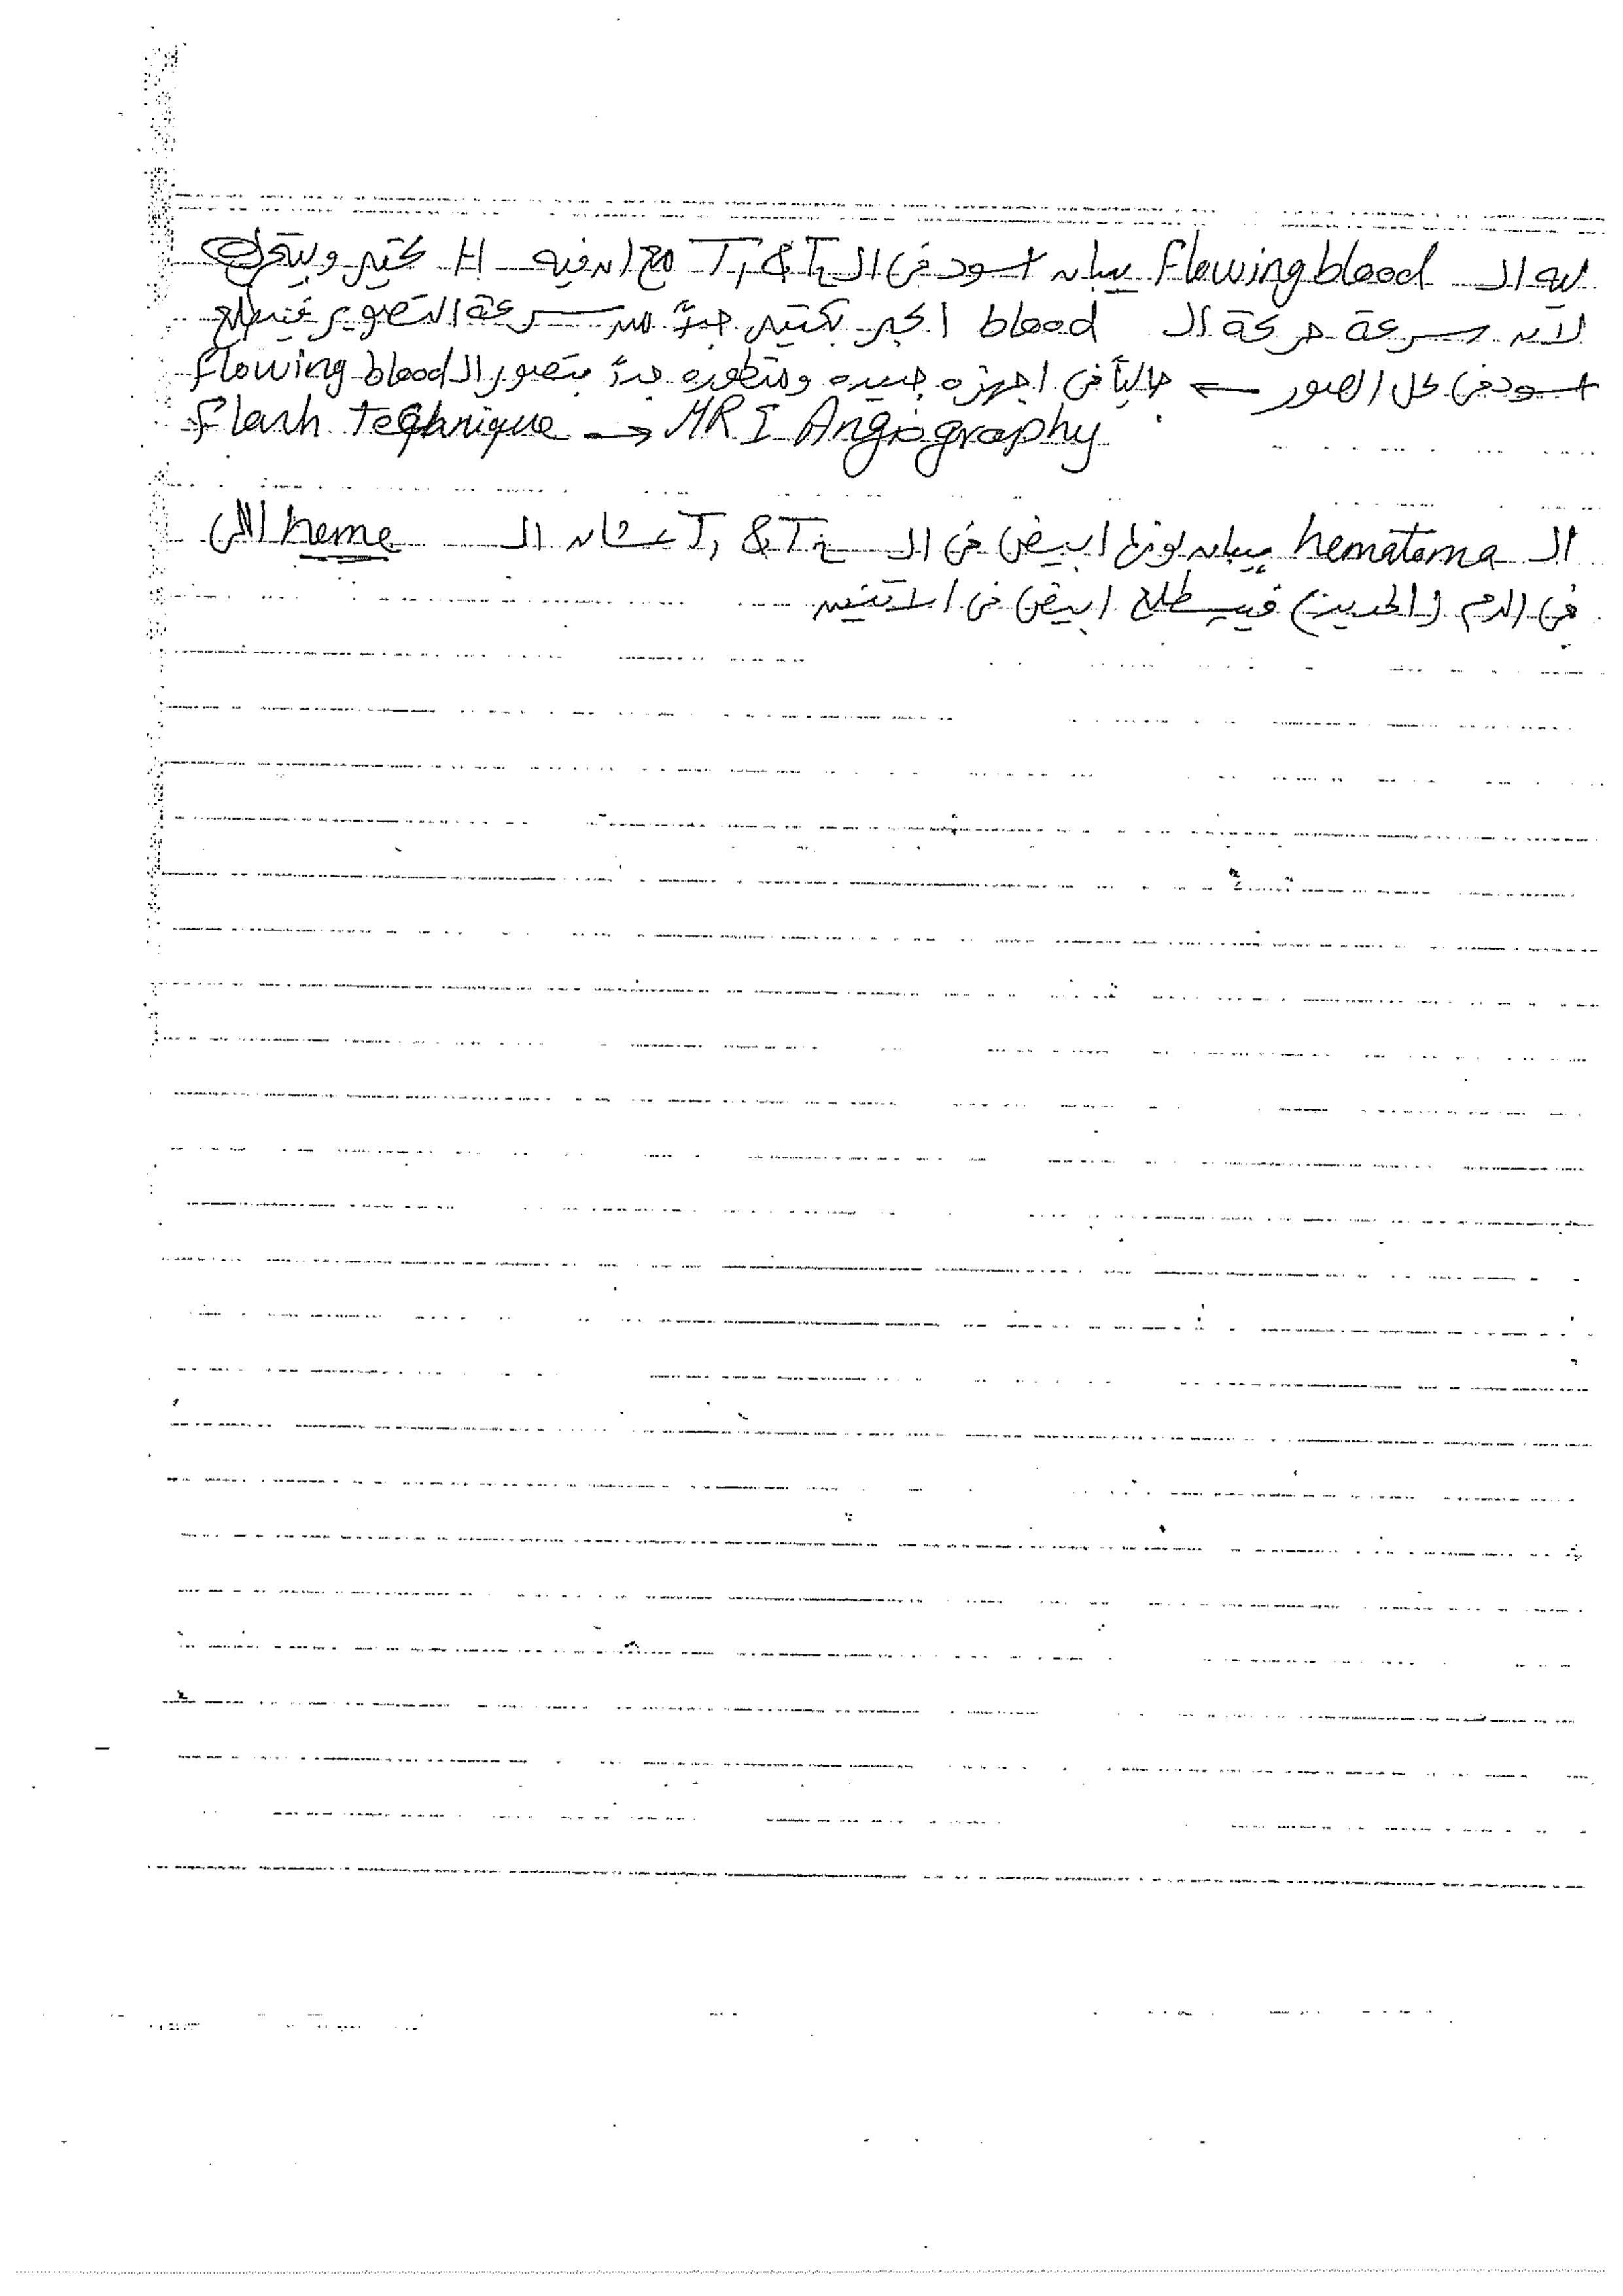 ليه الـ flowing blood بيبان اسود في الـ T1 & T2 مع ان فيه H كتير وبيتحرك
لأن سرعة حركة الـ blood اكبر بكتير جداً من سرعة التصوير فيطلع
اسود في كل الصور ← حالياً في اجهزه جديده ومتطوره جداً بتصور الـ flowing blood
flash technique → MRI Angiography
الـ hematoma بيبان لونها ابيض في الـ T1 & T2 عشان الـ heme اللي
في الدم (الحديد) فبيطلع ابيض في الاتنين